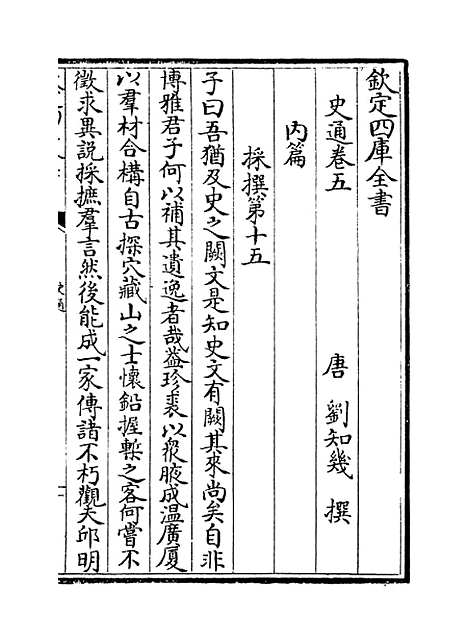 欽定四庫全書
史通卷五
唐 劉知幾 撰
内篇
採撰第十五
子曰吾猶及史之闕文是知史文有闕其來尚矣自非
博雅君子何以補其遺逸者哉葢珍裘以衆腋成温廣厦
以羣材合構自古探穴藏山之士懷鉛握槧之客何嘗不
徵求異說採摭羣言然後能成一家傳諸不朽觀夫邱明
史通